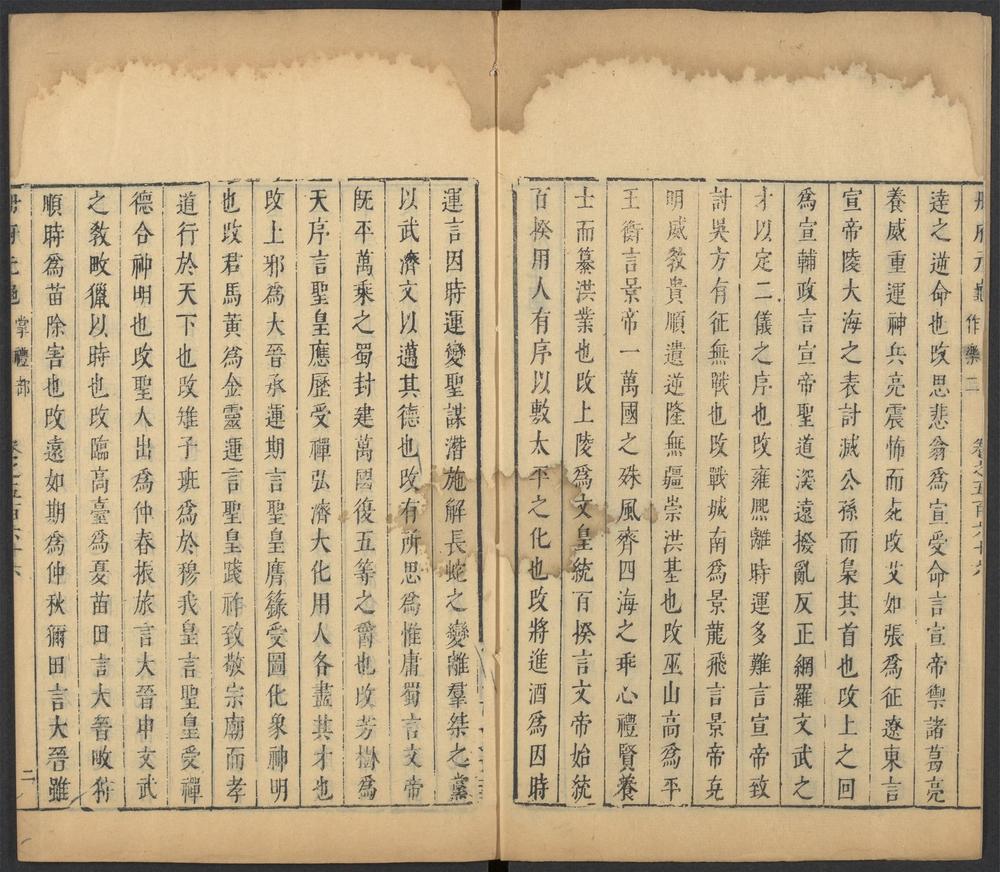 冊府元龜 作樂二 卷之五百六十六
達之逆命也改思悲翁爲宣受命言宣帝禦諸葛亮
養威重運神兵亮震怖而死改艾如張爲征遼東言
宣帝陵大海之表討滅公孫而梟其首也改上之回
爲宣輔政言宣帝聖道深遠撥亂反正網羅文武之
才以定二儀之序也改雍熈離時運多難言宣帝致
討吳方有征無戰也改戰城南爲景龍飛言景帝克
明威教貴順遣逆隆無疆崇洪基也改巫山高爲平
王衡言景帝一萬國之殊風齊四海之乖心禮賢養
士而纂洪業也改上陵爲文皇統百揆言文帝始統
百揆用人有序以敷太平之化也改將進酒爲因時
運言因時運變聖謀潛施解長蛇之變離羣桀之黨
以武濟文以邁其德也改有所思爲惟庸蜀言文帝
旣平萬乘之蜀封建萬國復五等之爵也改芳樹爲
天序言聖皇應歷受禪弘濟大化用人各盡其才也
改上邪爲大晉承運期言聖皇膺籙受圖化象神明
也改君馬黃爲金靈運言聖皇踐祚致敬宗廟而孝
道行於天下也改雉子班爲於穆我皇言聖皇受禪
德合神明也改聖人出爲仲春振旅言大晉申文武
之教畋獵以時也改臨高臺爲夏苗田言大晉畋狩
順時爲苗除害也改遠如期爲仲秋獮田言大晉雖
冊府元龜 掌禮部 卷之五百六十六 二